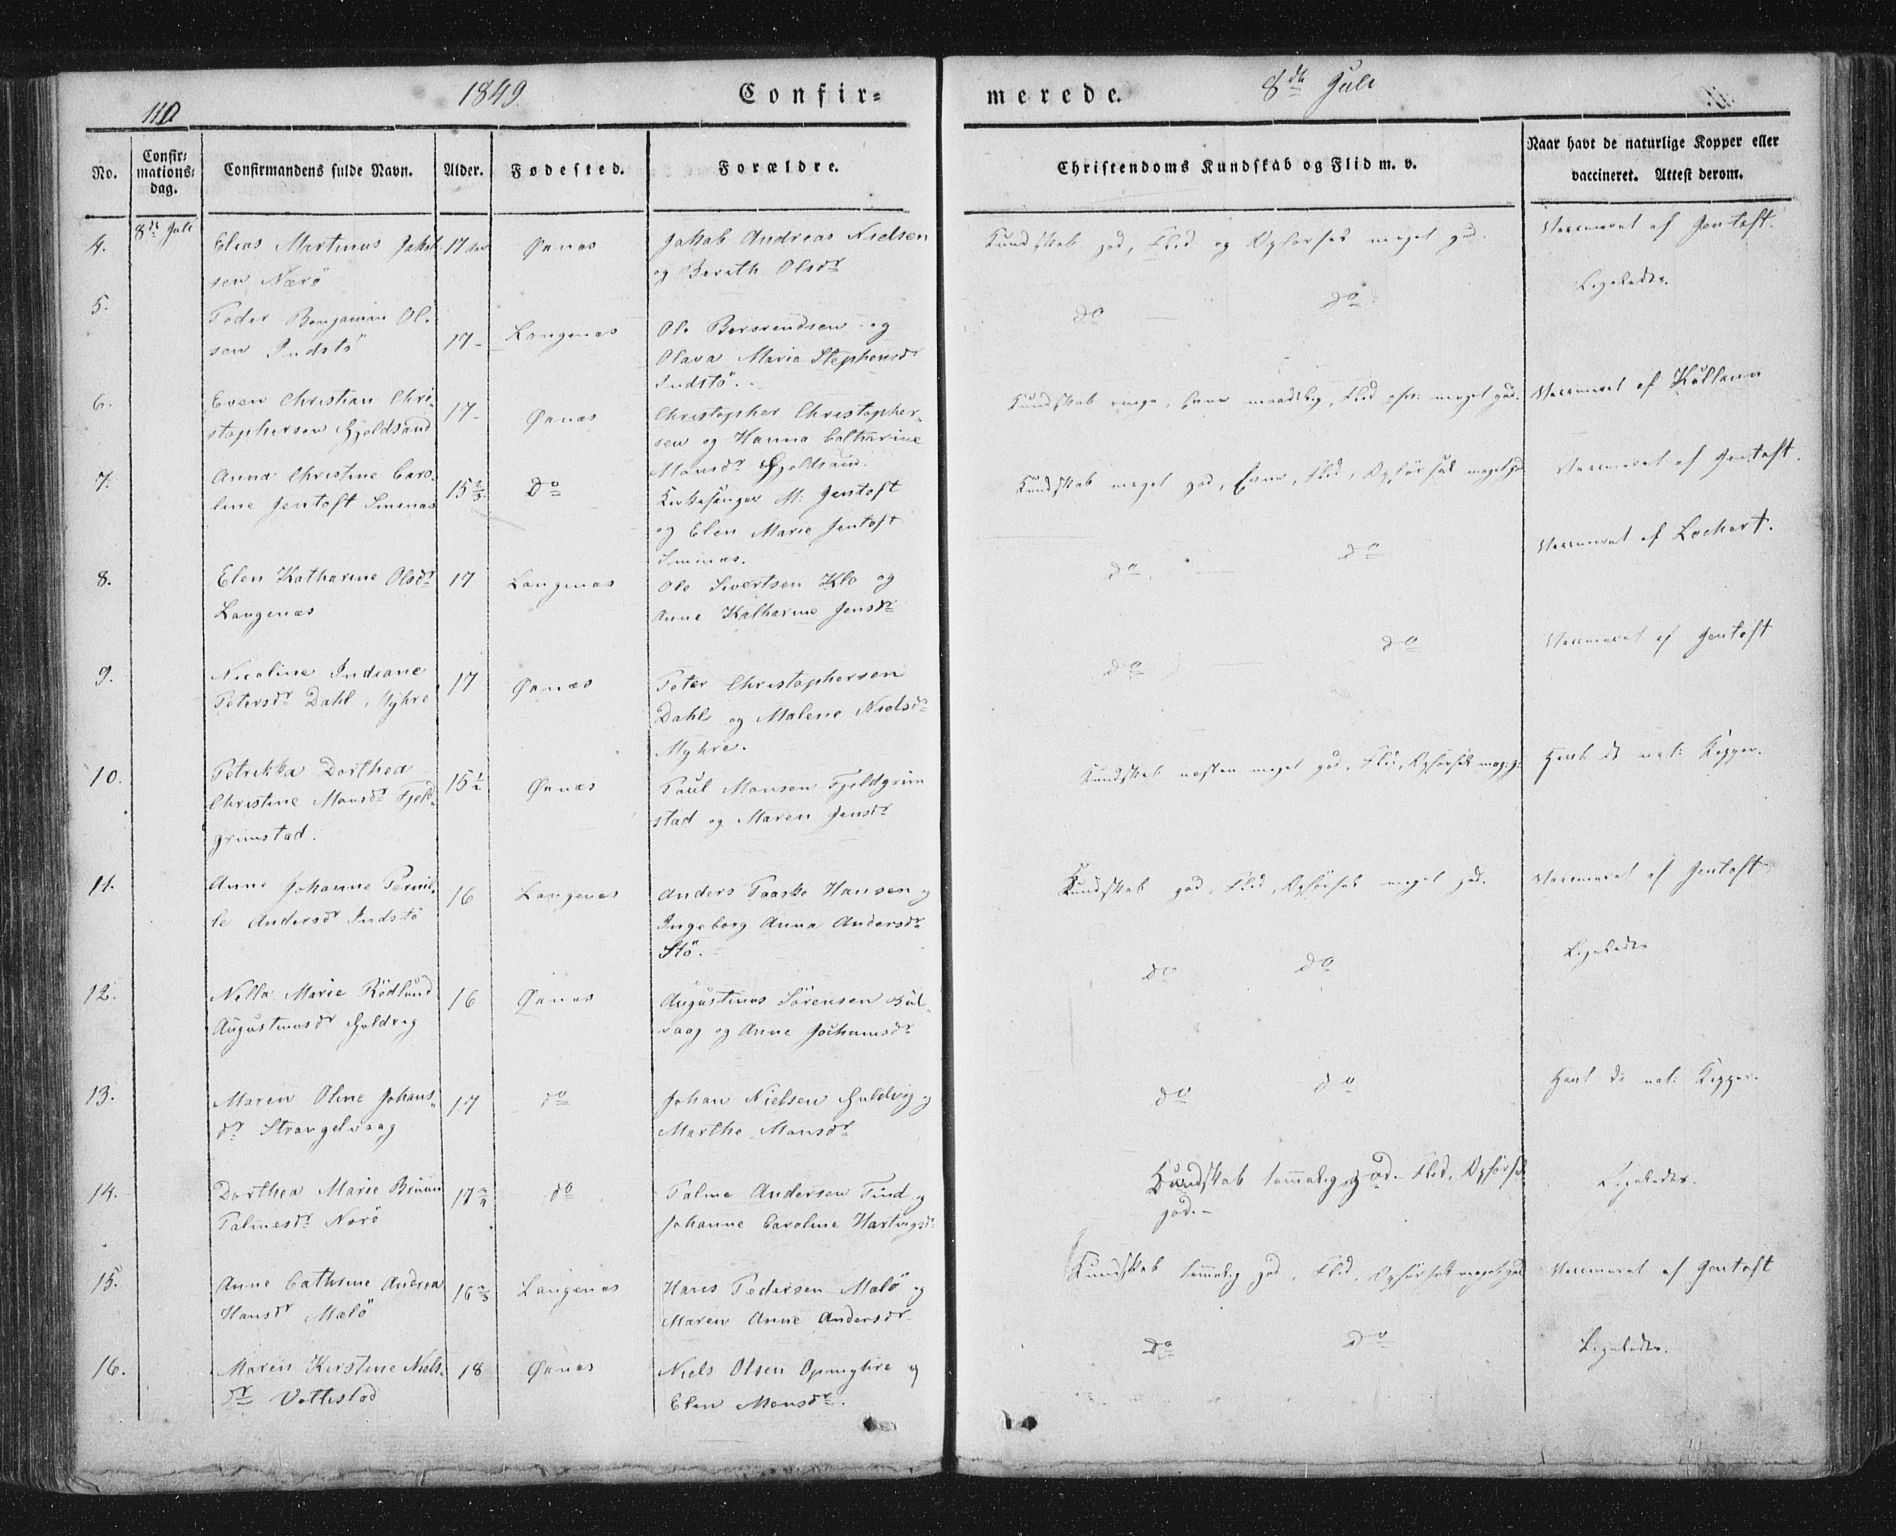 110
1849
Confir=
merede.
8de Juli
No.
Confir=
mations=
dag.
Confirmandens fulde Navn.
Alder.
Fødested.
Forældre.
Christendoms Kundskab og Flid m. v.
Naar havt de naturlige Kopper eller
vaccineret. Attest derom.
4.
8de Juli
Elias Martinus Jakob
sen Nærö
17
Øxnæs
Jakob Andreas Nielsen
og Berith Olsdr
Kundskab god, Flid og Opførsel meget god.
Vaccineret af Jentoft.
5.
Peder Benjamin Ol-
sen Indstö
17-
Langenæs
Ole Berrendsen og
Olava Marie Stephensdr
Indstö.
do
do
Ligeledes.
6.
Even Christian Chri-
stophersen Gjeldsand
17-
Øxnæs
Christopher Christopher-
sen og Hanna Catharine
Monsdr Gjeldsand.
Kundskab Evne maadelig, Flid meget god.
Vaccineret af
7.
Anna Christine Caro-
line Jentoft Smines
15 2/3
Do
Kirkesanger M: Jentoft
og Elen Marie Jentoft
Smines.
Kundskab meget god, Evne, Flid, Opförsel meget god
Vaccineret af Jentoft.
8.
Elen Katharine Olsdr
Langenæs
17
Langenæs
Ole Sivertsen Klo og
Anne Katharine Jensdr
do
do
Vaccineret af Lochert.
9.
Nicoline Indiane
Petersdr Dahl, Myhre
17
Øxnæs
Peter Christophersen
Dahl og Malene Nielsdr
Myhre.
do
do
Vaccineret af Jentoft
10.
Petrikka Dorthea
Christine Monsdr Fjeld-
grimstad.
15 1/2
Øxnæs
Paul Monsen Fjeldgrim
stad og Maren Jensdr
Kundskab næsten meget god, Flid, Opförsel meg: g:
Havt de nat: Kopper.
11.
Anne Johanne Pernil-
le Andersdr Indstö
16
Langenæs
Anders Paaske Hansen og
Ingeborg Anna Andersdr
Stö.
Kundskab god, Flid, Opförsel meget god.
Vaccineret af Jentoft
12.
Nella Marie Rödlund
Augustinusdr Guldvig
16
Øxnæs
Augustinus Sörensen Gul-
vaag og Anne Jochumsdr
do
do
Ligeledes
13.
Maren Oline Johans-
dr Strangelvaag
17
do
Johan Nielsen Guldvig og
Marthe Monsdr
do
do
Havt de nat: Kopper.
14.
Dorthea Marie Bruun
Palmesdr Nærö
17
do
Palme Andersen Tind og
Johanne Caroline Hartvigsdr
Kundskab temmelig god. Flid, Opförsel
god.-
Ligeledes.
15.
Anne Cathrine Andrea
Hansdr Mælö
16 2/3
Langenæs
Hans Pedersen Malö og
Maren Anne Andersdr
Kundskab temmelig god, Flid, Opförsel meget god
Vaccineret af Jentoft
16.
Maren Kirstine Niels-
dr Vottestad
18
Øxnæs
Niels Olsen Opmyhre og
Elen Monsdr.
do
do
Ligeledes.